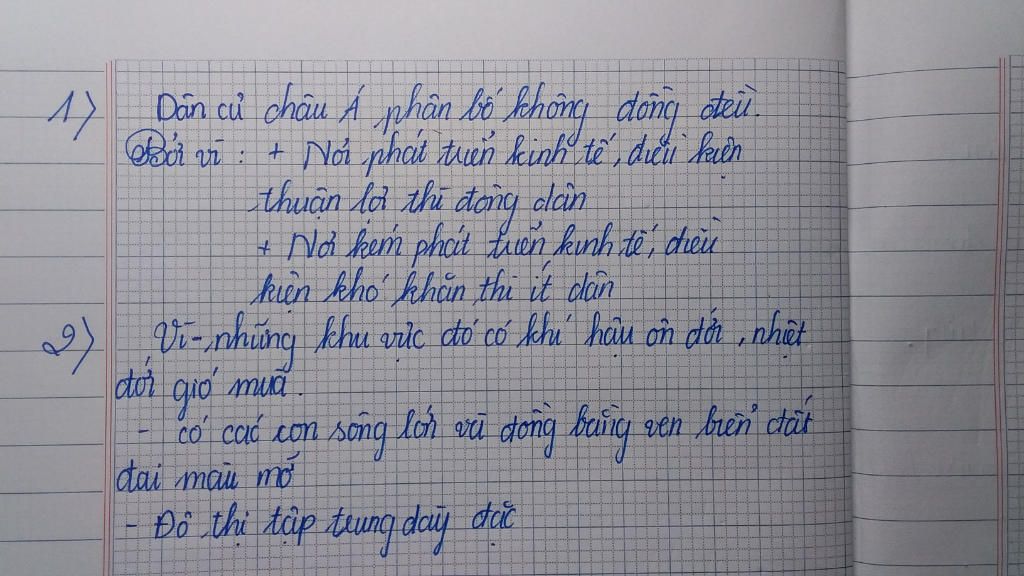 1) Dân cư châu Á phân bố không đồng đều.
Bởi vì : + Nơi phát tuển kinh tế, điều kiện
thuận lợi thì đông dân
+ Nơi kém phát tuển kinh tế, điều
kiện khó khăn thì ít dân
2) Vì - những khu vực đó có khí hậu ôn đới, nhiệt
đới gió mùa.
- có các con sông lớn và đồng bằng ven biển đất
đai màu mỡ
- Đô thị tập trung dày đặc